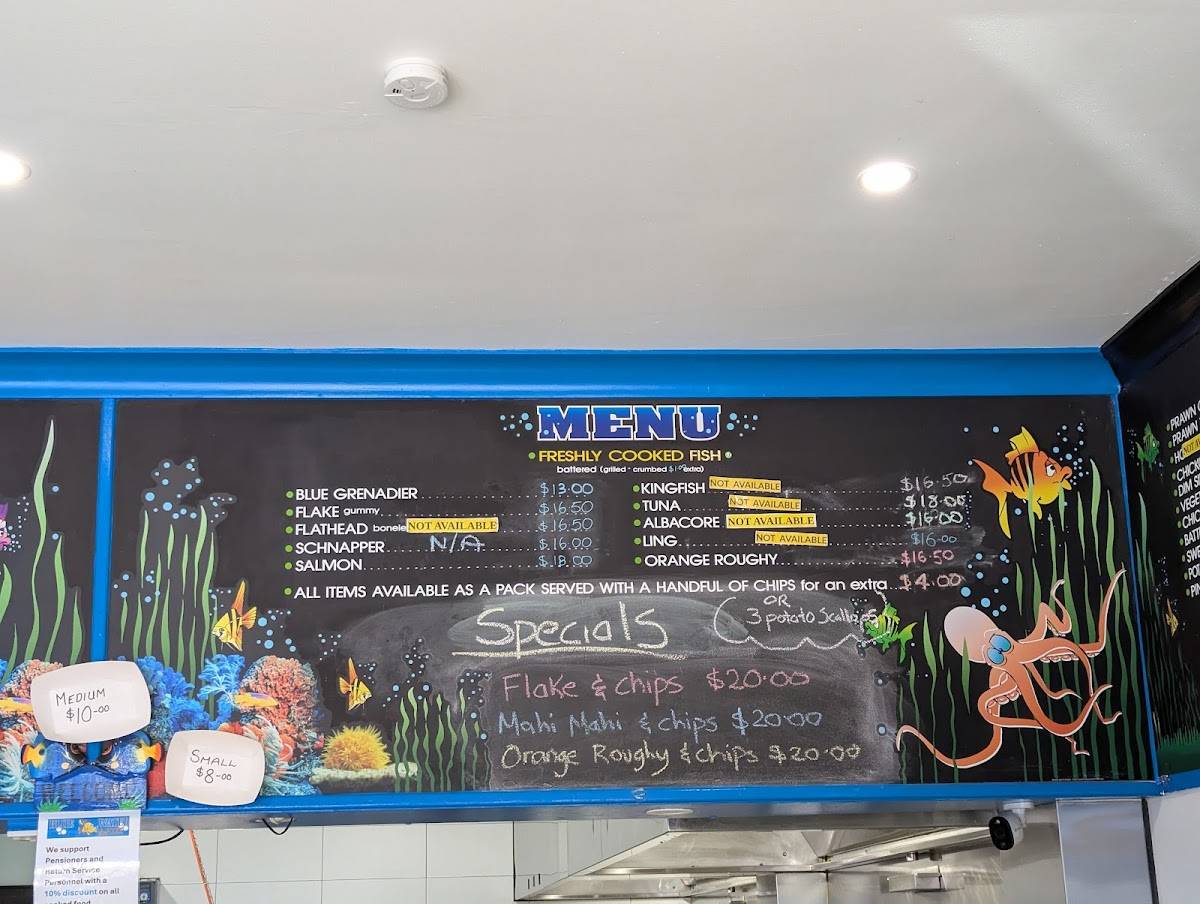 MENU
FRESHLY COOKED FISH
battered (grilled - crumbed $1.00 extra)
BLUE GRENADIER $13.00
FLAKE gummy $16.50
FLATHEAD NOT AVAILABLE $16.50
SCHNAPPER N/A $16.00
SALMON $18.00
KINGFISH NOT AVAILABLE $16.50
TUNA NOT AVAILABLE $18.00
ALBACORE NOT AVAILABLE $16.00
LING NOT AVAILABLE $16-00
ORANGE ROUGHY $16.50
ALL ITEMS AVAILABLE AS A PACK SERVED WITH A HANDFUL OF CHIPS for an extra $4.00
OR
3 potato Scallops
Specials
Flake & chips $20.00
Mahi Mahi & chips $20.00
Orange Roughy & chips $20.00
MEDIUM
$10-00
SMALL
$8-00
We support
Pensioners and
Return Service
Personnel with a
10% discount on all
PRAWN
PRAWN
CHICKE
DIM SI